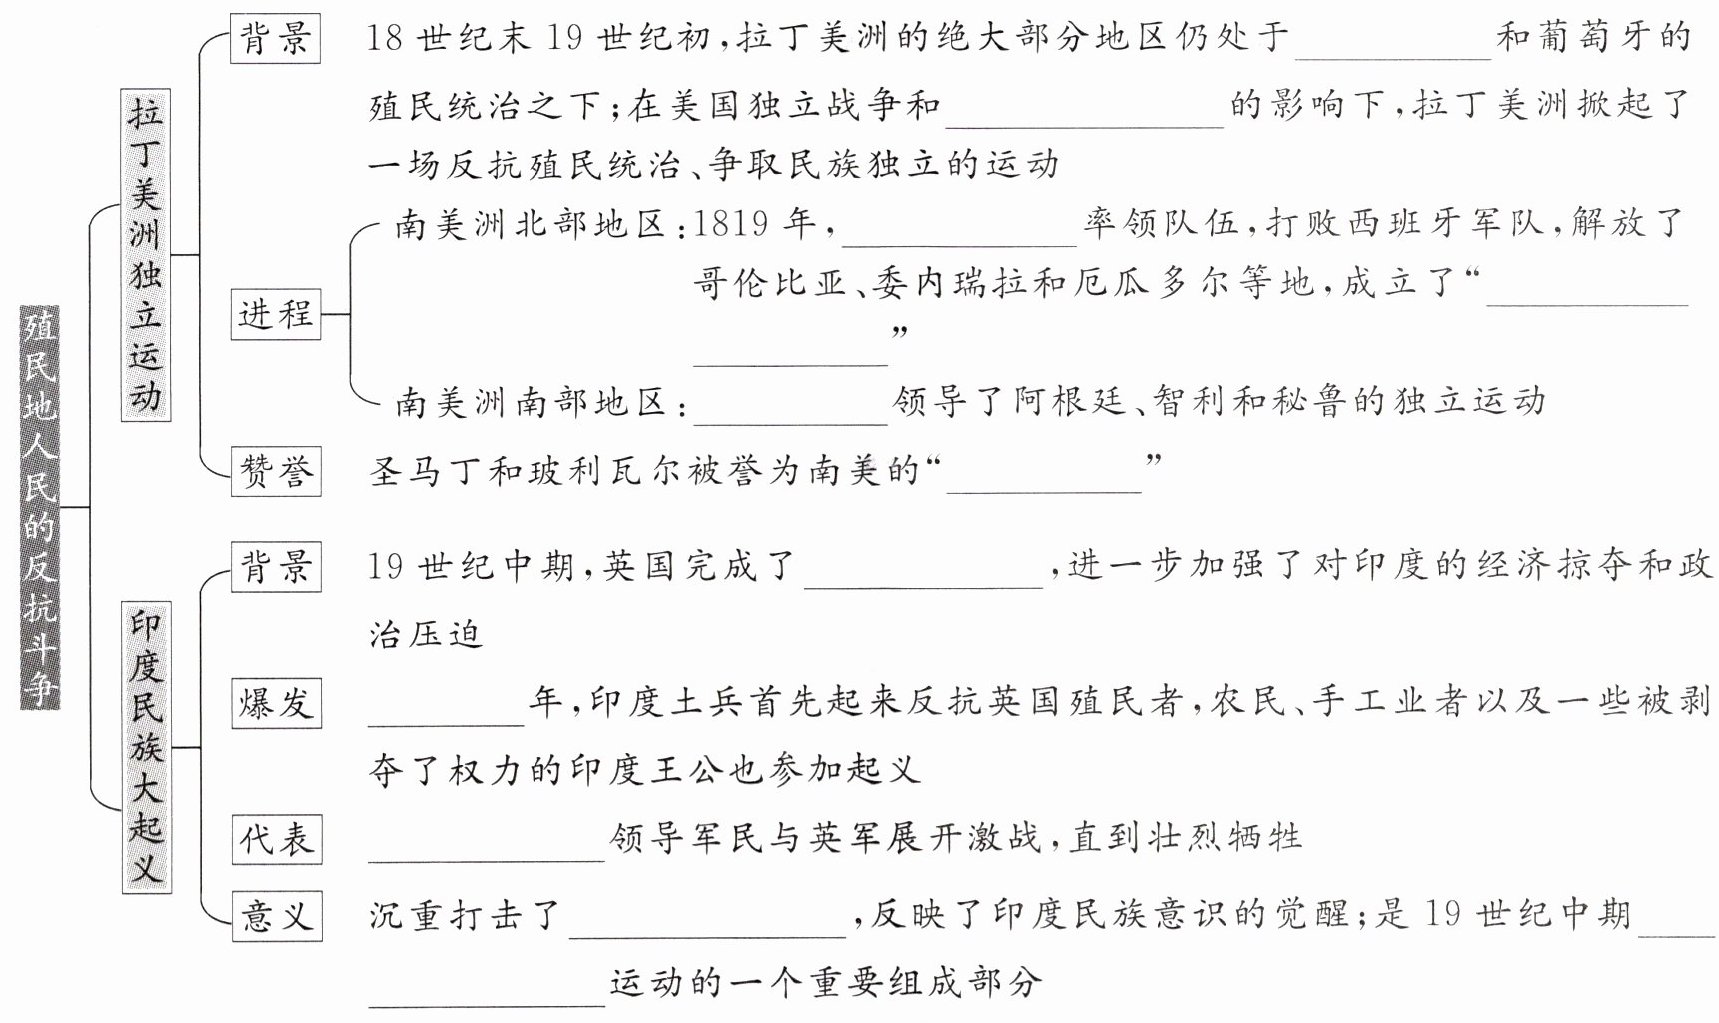 殖民地人民的反抗斗争
拉丁美洲独立运动
背景
18世纪末19世纪初,拉丁美洲的绝大部分地区仍处于__________和葡萄牙的
殖民统治之下;在美国独立战争和______________的影响下,拉丁美洲掀起了
一场反抗殖民统治、争取民族独立的运动
进程
南美洲北部地区:1819年,____________率领队伍,打败西班牙军队,解放了
哥伦比亚、委内瑞拉和厄瓜多尔等地,成立了“__________
__________”
南美洲南部地区:__________领导了阿根廷、智利和秘鲁的独立运动
赞誉
圣马丁和玻利瓦尔被誉为南美的“__________”
印度民族大起义
背景
19世纪中期,英国完成了____________,进一步加强了对印度的经济掠夺和政
治压迫
爆发
________年,印度土兵首先起来反抗英国殖民者,农民、手工业者以及一些被剥
夺了权力的印度王公也参加起义
代表
____________领导军民与英军展开激战,直到壮烈牺牲
意义
沉重打击了______________,反映了印度民族意识的觉醒;是19世纪中期____
____________运动的一个重要组成部分